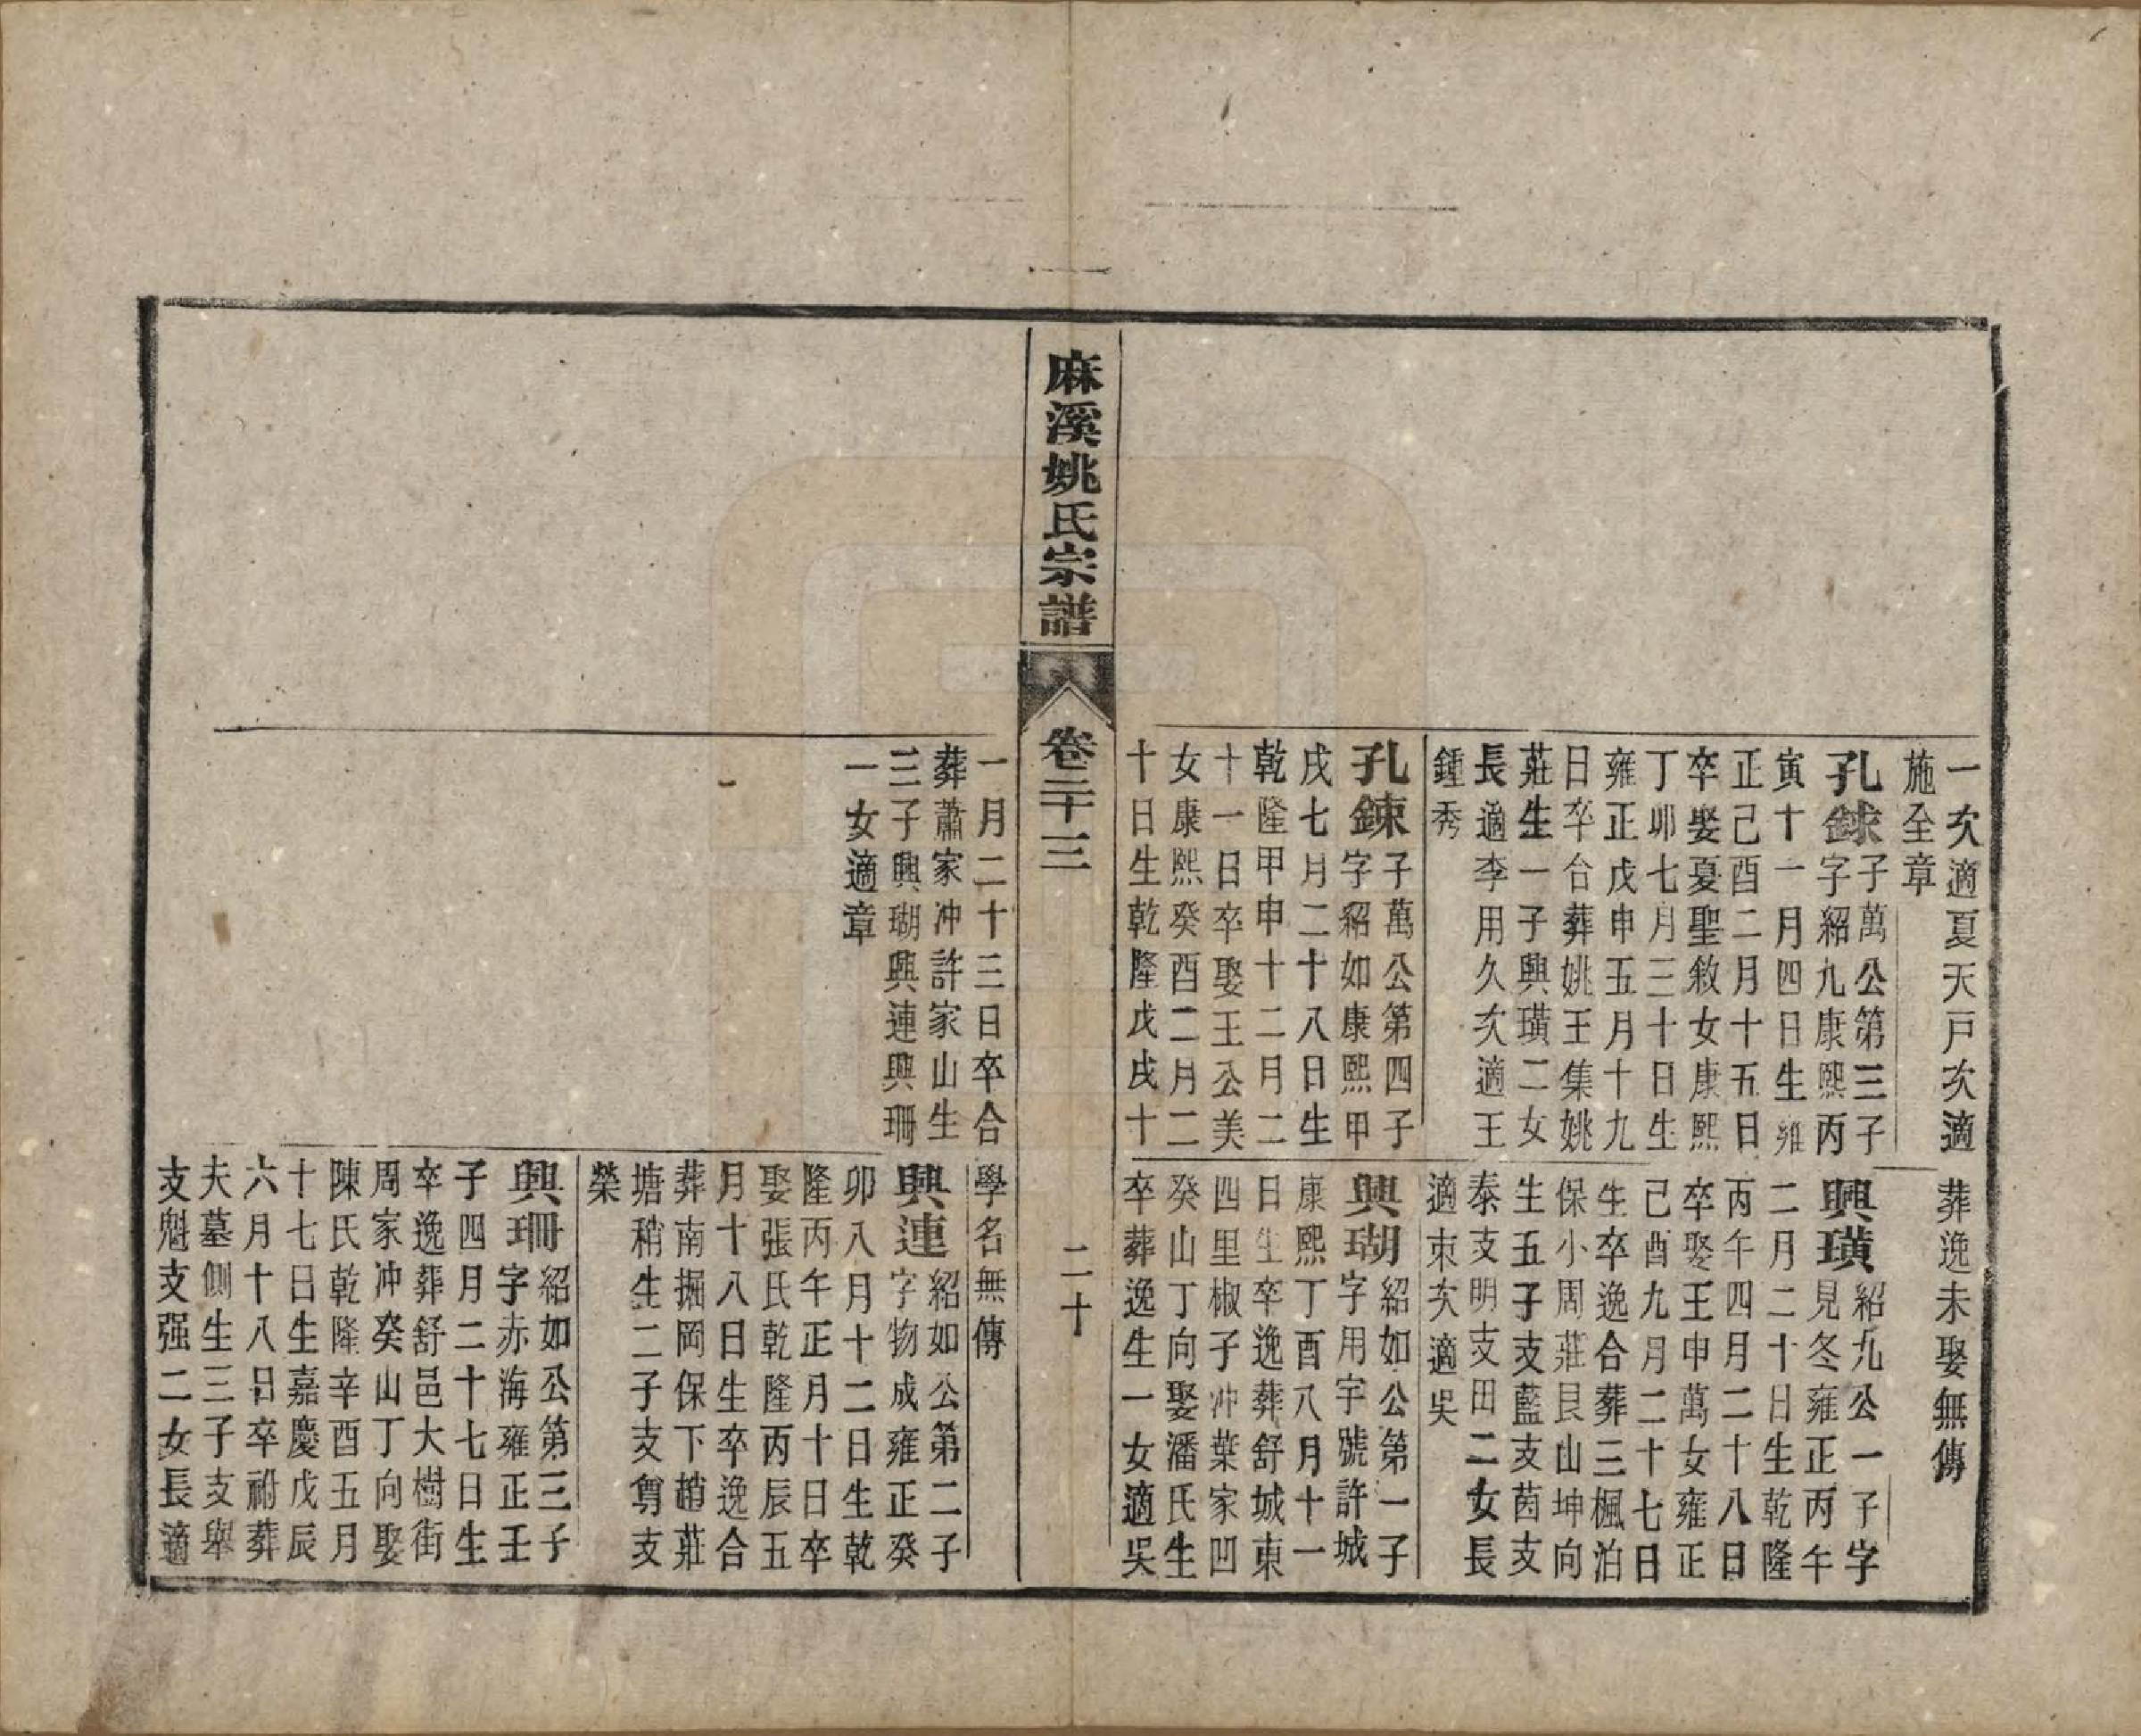 一次適夏天戸次適
施全章
孔銾子萬公第三子
字紹九康熙丙
寅十一月四日生雍
正己酉二月十五日
卒娶夏聖敘女康熙
丁卯七月三十日生
雍正戊申五月十九
日卒合葬姚王集姚
莊生一子興璜二女
長適李用久次適王
鍾秀
孔鍊子萬公第四子
字紹如康熙甲
戌七月二十八日生
乾隆甲申十二月二
十一日卒娶王公美
女康熙癸酉二月二
十日生乾隆戊戌十
葬逸未娶無傳
興璜紹九公一子字
見冬雍正丙午
二月二十日生乾隆
丙午四月二十八日
卒娶王申萬女雍正
己酉九月二十七日
生卒逸合葬三楓泊
保小周莊艮山坤向
生五子支藍支茵支
泰支明支田二女長
適朿次適吳
興瑚紹如公第一子
字用宇號許城
康熙丁酉八月十一
日生卒逸葬舒城東
四里椒子冲葉家凹
癸山丁向娶潘氏生
卒葬逸生一女適吳
麻溪姚氏宗譜
卷二十三
二十
一月二十三日卒合
葬蕭家冲許家山生
三子興瑚興連興珊
一女適章
學名無傳
興連紹如公第二子
字物成雍正癸
卯八月十二日生乾
隆丙午正月十日卒
娶張氏乾隆丙辰五
月十八日生卒逸合
葬南掘岡保下趙莊
塘稍生二子支舄支
榮
興珊紹如公第三子
字赤海雍正壬
子四月二十七日生
卒逸葬舒邑大樹街
周家冲癸山丁向娶
陳氏乾隆辛酉五月
十七日生嘉慶戊辰
六月十八日卒祔葬
夫墓側生三子支舉
支魁支强二女長適